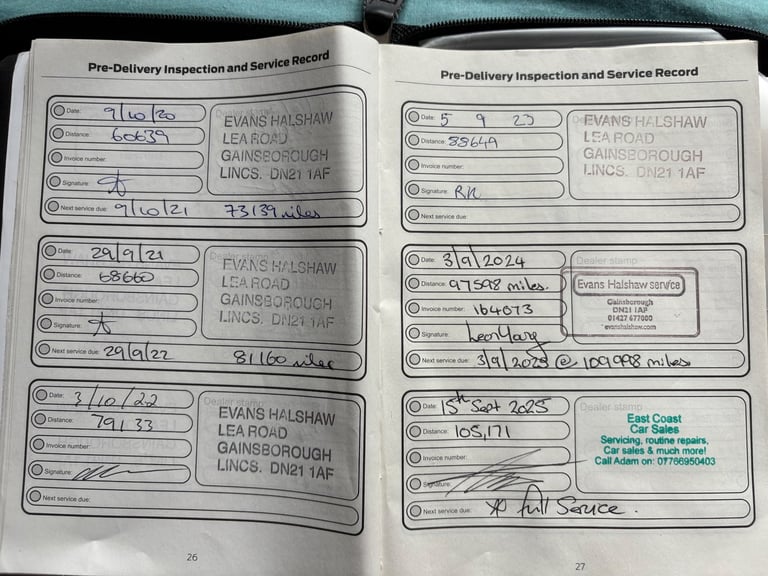 Pre-Delivery Inspection and Service Record
Date: 9/10/20
Distance: 60639
Invoice number:
Signature:
Next service due: 9/10/21 73139 miles
Dealer stamp
EVANS HALSHAW
LEA ROAD
GAINSBOROUGH
LINCS. DN21 1AF
Date: 29/9/21
Distance: 68660
Invoice number:
Signature:
Next service due: 29/9/22 81160 miles
Dealer stamp
EVANS HALSHAW
LEA ROAD
GAINSBOROUGH
LINCS. DN21 1AF
Date: 3/10/22
Distance: 79133
Invoice number:
Signature:
Next service due:
Dealer stamp
EVANS HALSHAW
LEA ROAD
GAINSBOROUGH
LINCS. DN21 1AF
26
Pre-Delivery Inspection and Service Record
Date: 5 9 23
Distance: 88649
Invoice number:
Signature: RK
Next service due:
EVANS HALSHAW
LEA ROAD
GAINSBOROUGH
LINCS. DN21 1AF
Date: 3/9/2024
Distance: 97598 miles.
Invoice number: 164073
Signature:
Next service due: 3/9/2025 @ 109998 miles
Dealer stamp
Evans Halshaw service
Gainsborough
DN21 1AF
01427 677000
evanshalshaw.com
Date: 15th Sept 2025
Distance: 105,171
Invoice number:
Signature:
Next service due: full Service.
Dealer stamp
East Coast
Car Sales
Servicing, routine repairs,
Car sales & much more!
Call Adam on: 07766950403
27